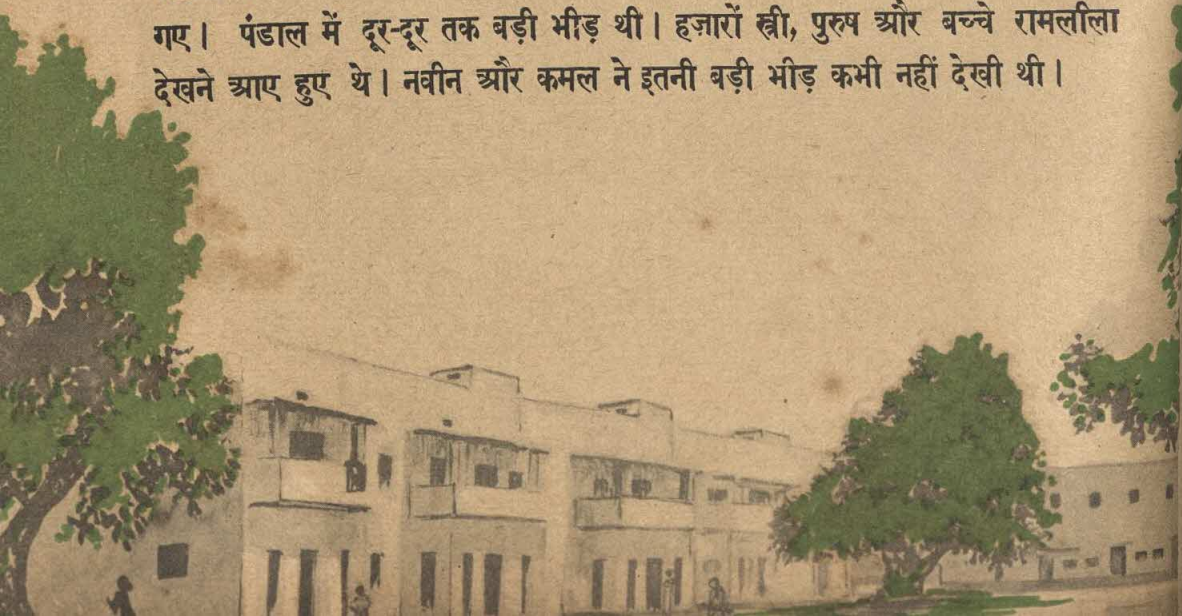 गए। पंडाल में दूर-दूर तक बड़ी भीड़ थी। हज़ारों स्त्री, पुरुष और बच्चे रामलीला
देखने आए हुए थे। नवीन और कमल ने इतनी बड़ी भीड़ कभी नहीं देखी थी।